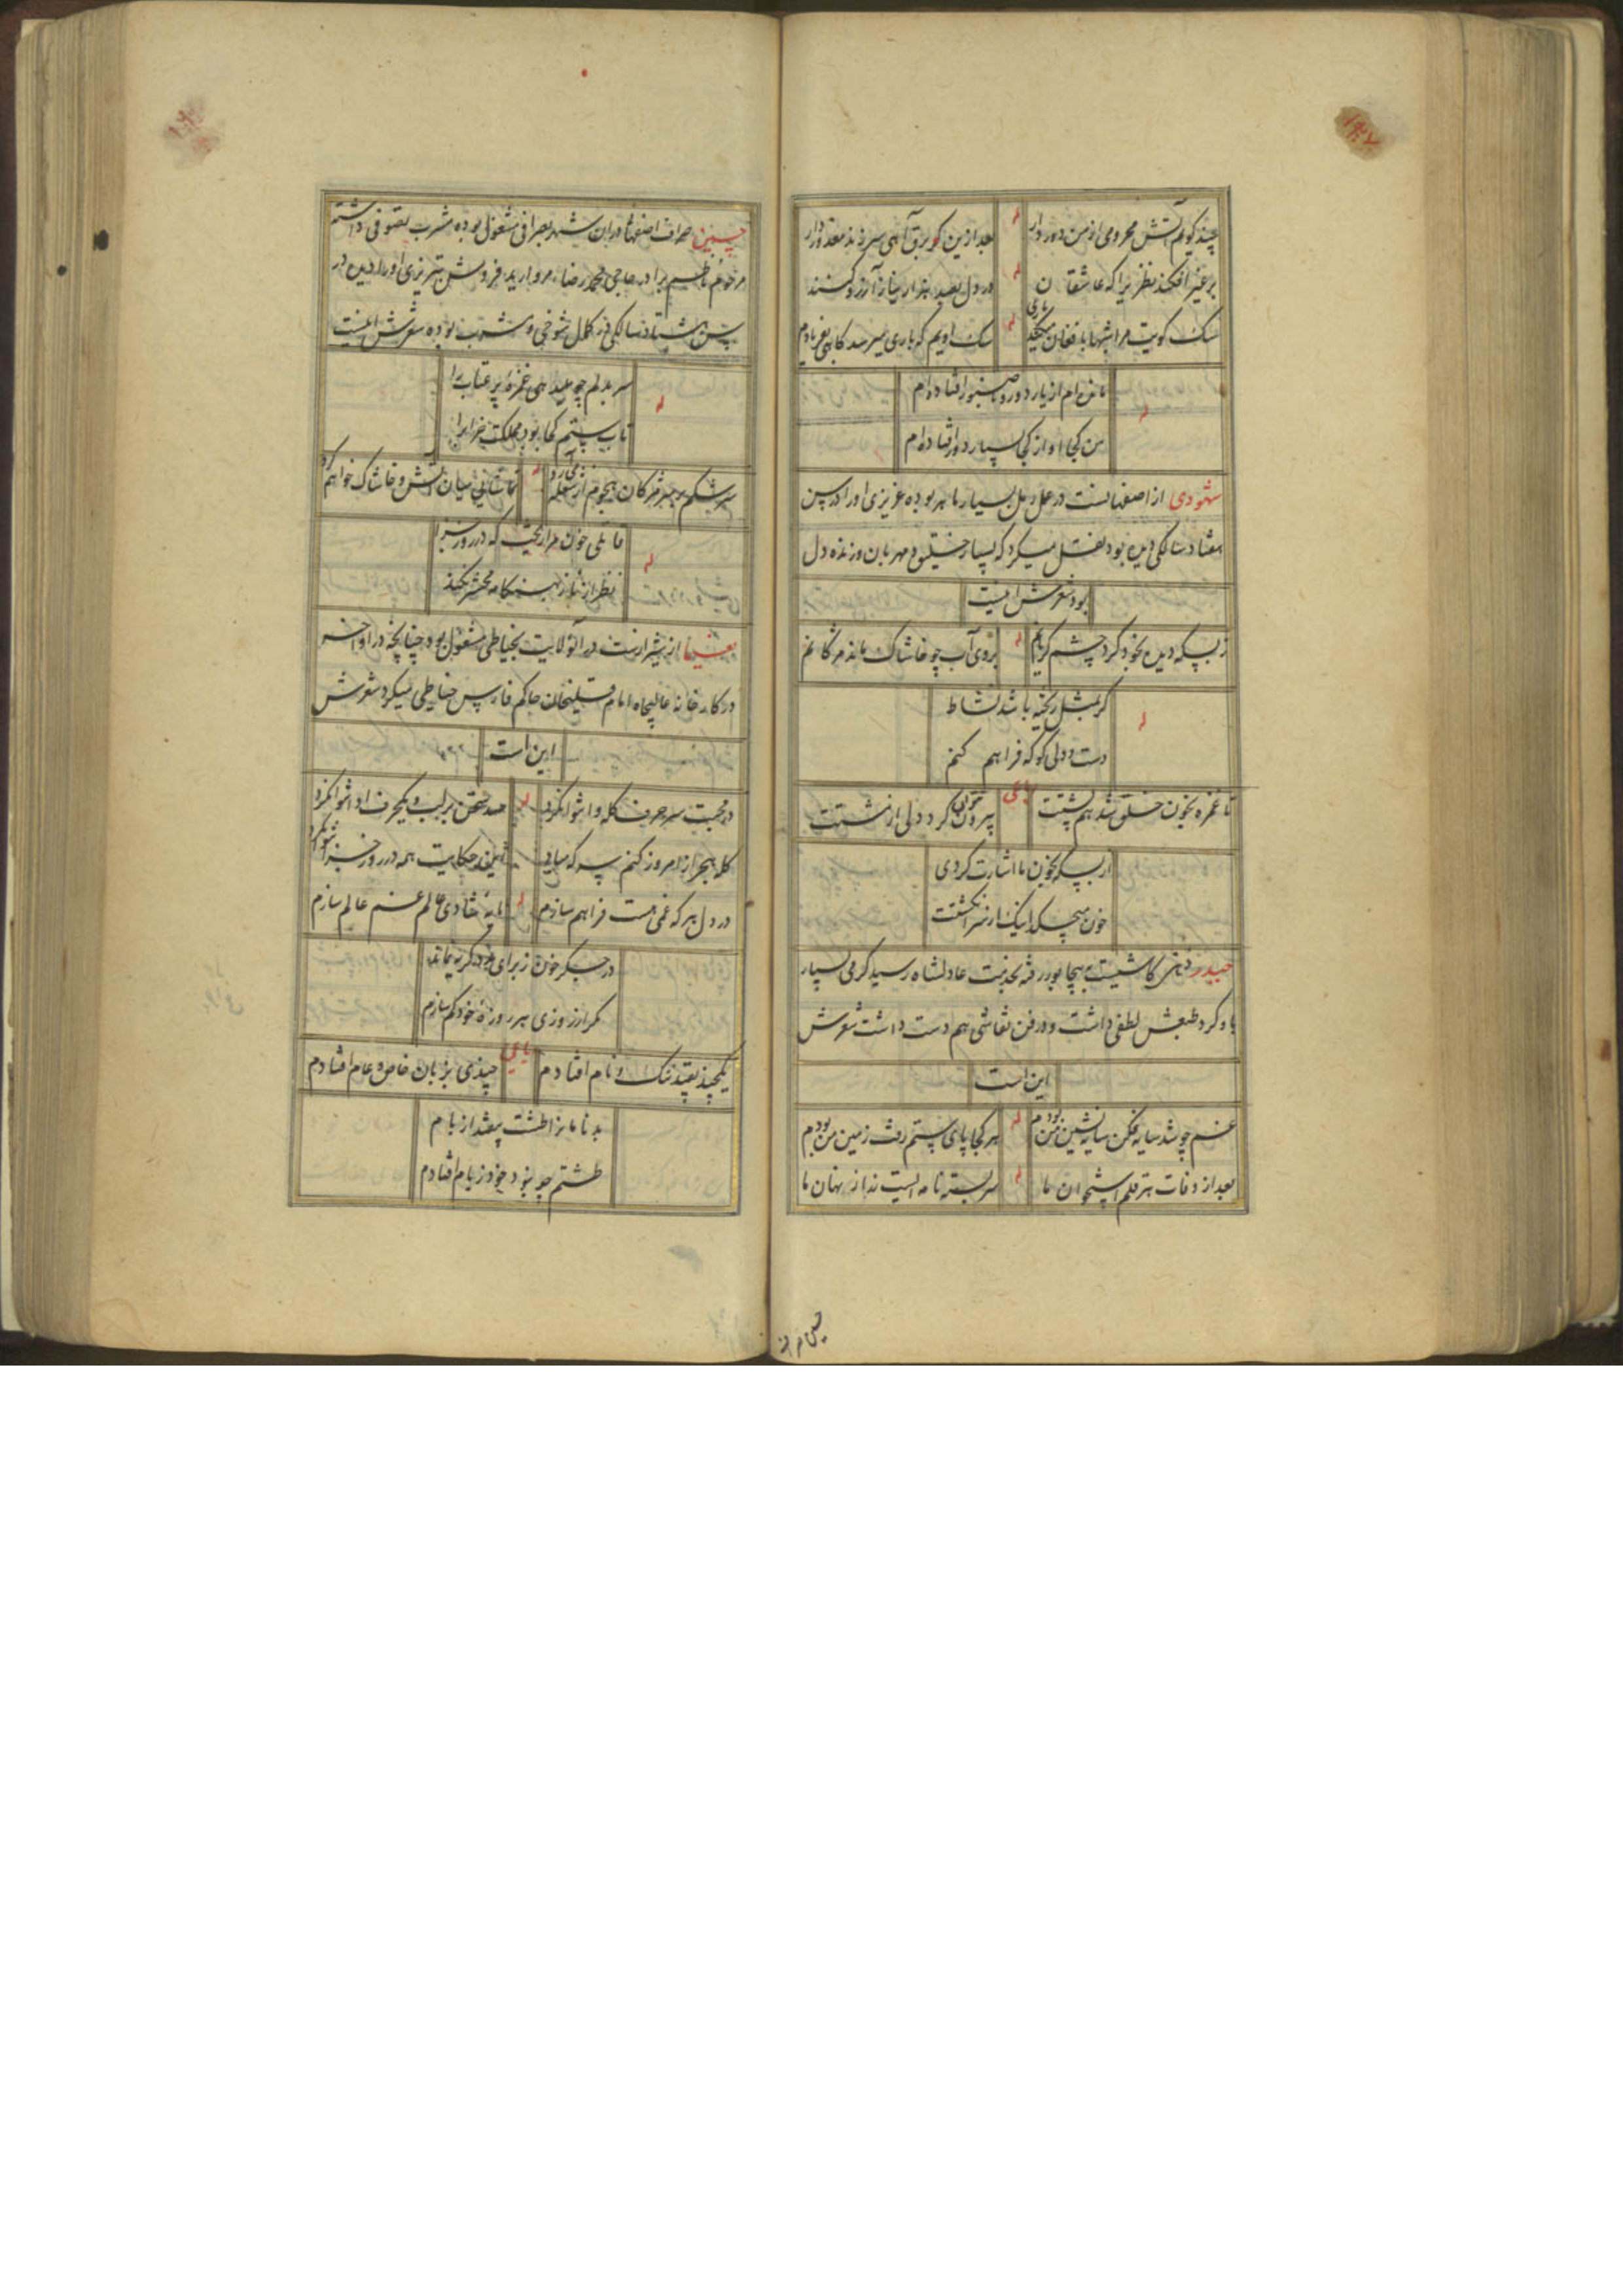 چند گویم آتش محرومی از من دور دار
له
بعد ازین گر برق آهی سر زند معذور دار
بر غیر افکند نظر زیرا که عاشقان
له
در دل بصد هزار نیاز آرزو کنند
سک کویت مرا شبها بافغان میکند یاری
له
سک اویم که باری میرسد کاهی بفریادم
تا من ام از یار دور و ناصبور افتاده ام
له
من کجا او از کجا بسیار دور افتاده ام
شهودی از اصفهانست در عمل رمل بسیار ماهر بوده عزیزی او را در سن
هفتاد سالکی دیده بود نقل میکرد که بسیار خلیق و مهربان و زنده دل
بود شعرش اینست
ز بسکه دیده بخود کرد چشم گریانم
له
بروی آب چو خاشاک ماند مژگانم
گر بمثل ریخته باشد نشاط
له
دست و دلی کو که فراهم کنم
تا غمزه بخون خلق شد هم پشتت
رباعی
بیرون نتوان کرد دلی از مشتت
از بسکه بخون ما اشارت کردی
خون میچکد اینک از سر انگشتت
حیدر ذهنی کاشیست به بیجاپور رفته بخدمت عادلشاه رسید گرمی بسیار
باو کرد طبعش لطفی داشت و در فن نقاشی هم دست داشت شعرش
این است
غم چو شد سایه فکن سایه نشین من بودم
له
هر کجا پای ستم رفت زمین من بودم
بعد از وفات هر قلم استخوان ما
له
سر بسته نامه ایست ز راز نهان ما
حسین صراف
حسین صراف اصفهانی در ان شهر بصرافی مشغول بوده مشرب تصوفی داشته
مرحوم ناظم برادر حاجی محمد رضاء مروارید فروش تبریزی او را دیده در
سن هشتاد سالکی در کمال شوخی و مشرب بوده شعرش اینست
سر بدلم چو میدهی غمزه پر عتاب را
له
تاب ستم کجا بود مملکت خراب را
سرشکم بر سر مژگان هجوم از شعله می آرد
له
تماشایی میان آتش و خاشاک خواهم کرد
قاتلی خون مرا ریخت که در روز جزا
له
نظر از ناز بهنگامه محشر نکند
نعیما از شیراز ست در آنولایت بخیاطی مشغول بود چنانچه در اواخر
در کارخانه عالیجاه امام قلیخان حاکم فارس خیاطی میکرد شعرش
این است
در محبت سر حرف گله وا نتوان کرد
له
صد سخن بر لب و یکحرف ادا نتوان کرد
گله هجر از امروز کنم سر که مباد
اینهمه حکایت همه در روز جزا نتوان کرد
در دل هر که غمی هست فراهم سازم
له
مایه شادی عالم غم عالم سازم
در جگر خون ز برای مدد گریه نماند
مگر از روزی هر روزه خود کم سازم
یکچند بقید ننگ و نام افتادم
رباعی
چندی بزبان خاص و عام افتادم
بدنامانرا طشت بیفتد از بام
طشتم چو نبود خود ز بام افتادم